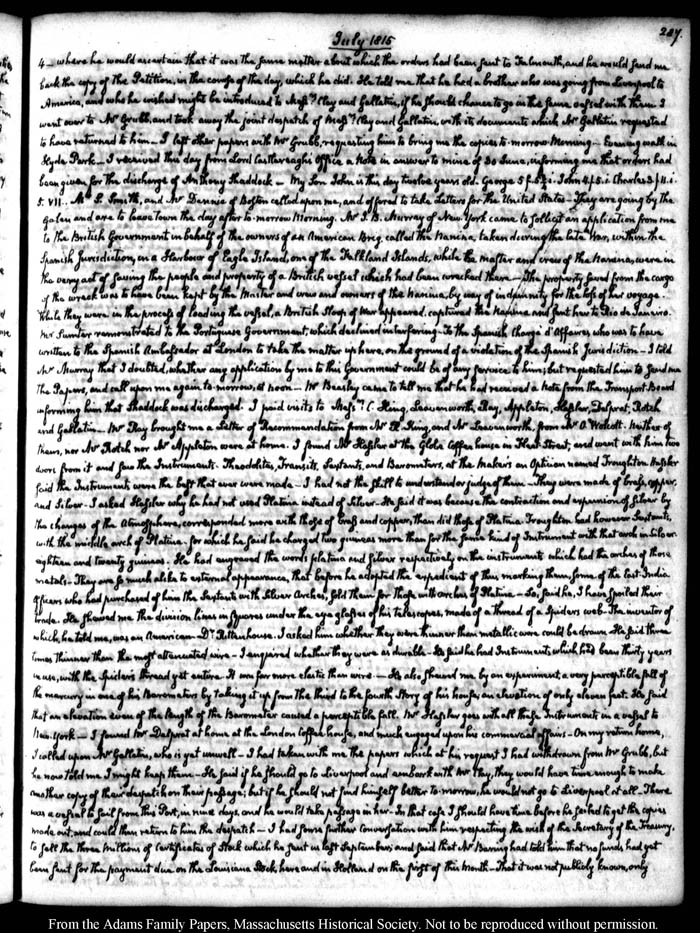 July 1815
247.
4 — where he would ascertain that it was the same matter about which the orders had been sent to Falmouth, and he would send me
back the copy of the Petition, in the course of the day, which he did. He told me that he had a brother who was going from Liverpool to
America, and who he wished might be introduced to Messrs Clay and Gallatin, if he should chance to go in the same vessel with them. I
went over to Mr Grubb, and took away the joint despatch of Messrs Clay and Gallatin, with its documents which Mr Gallatin requested
to have returned to him — I left other papers with Mr Grubb, requesting him to bring me the copies to-morrow Morning — Evening walk in
Hyde Park — I received this day from Lord Castlereagh's Office a Note in answer to mine of 30 June, informing me that orders had
been given for the discharge of Anthony Thaddock — My Son John is this day twelve years old. George 5 f. John 4 f. Charles 3 f. 11. i.
5. VII. Mr S. Smith, and Mr Dennie of Boston called upon me, and offered to take Letters for the United States — They are going by the
Galen and are to leave town the day after to-morrow Morning. Mr J. B. Murray of New York came to sollicit an application from me
to the British Government in behalf of the owners of an American Brig, called the Nanina, taken during the late War, within the
Spanish Jurisdiction, in a Harbour of Eagle Island, one of the Falkland Islands, while the master and crew of the Nanina, were in
the very act of saving the people and property of a British vessel which had been wrecked there — The property saved from the cargo
of the wreck was to have been kept by the Master and crew and owners of the Nanina, by way of indemnity for the loss of her voyage.
While they were in the process of loading the vessel, a British Sloop of War appeared, captured the Nanina and sent her to Rio de Janeiro.
Mr Sumter remonstrated to the Portuguese Government, which declined interfering. To the Spanish Chargé d'Affaires who was to have
written to the Spanish Ambassador at London to take the matter up here, on the ground of a violation of the Spanish Jurisdiction — I told
Mr Murray that I doubted, whether any application by me to this Government could be of any service to him; but requested him to send me
the Papers, and call upon me again to-morrow, at noon — Mr Beasley came to tell me that he had received a Note from the Transport Board
informing him that Thaddock was discharged. I paid visits to Messrs C. King, Leavenworth, Ray, Appleton, Hassler, Delprat, Rotch
and Gallatin — Mr Ray brought me a Letter of Recommendation from Mr R. King, and Mr Leavenworth, from Mr O. Wolcott. Neither of
them, nor Mr Rotch nor Mr Appleton were at home. I found Mr Hassler at the Globe Coffee house in Fleet Street, and went with him two
doors from it and saw the Instruments. Theodolites, Transits, Sextants, and Barometers, at the Maker's an Optician named Troughton. Hassler
said the Instruments were the best that ever were made — I had not the skill to understand or judge of them — They were made of brass, copper,
and Silver — I asked Hassler why he had not used Platina instead of Silver — He said it was because the contraction and expansion of silver by
the changes of the Atmosphere, corresponded more with those of brass and copper, than did those of Platina. Troughton had however Sextants,
with the middle arch of Platina — for which he said he charged two guineas more than for the same kind of Instrument with that arch in Silver —
eighteen and twenty guineas. He had engraved the words platina and silver respectively, on the instruments which had the arches of those
metals — They are so much alike to external appearance, that before he adopted the expedient of thus marking them, some of the East-India
Officers who had purchased of him the Sextants with Silver Arches, sold them for those with arches of Platina — So, said he, I have spoiled their
trade. He showed me the division lines in squares under the eye glasses of his telescopes, made of a thread of a Spiders web. The inventor of
which, he told me, was an American — Dr Rittenhouse. I asked him whether they were thinner than metallic wire could be drawn. He said three
times thinner than the most attenuated wire — I enquired whether they were as durable — He said he had Instruments, which had been thirty years
in use, with the Spider's thread yet entire. It was far more elastic than wire — He also showed me by an experiment, a very perceptible fall of
the mercury in one of his Barometers by taking it up from the third to the fourth Story of his house, an elevation of only eleven feet. He said
that an elevation even of the length of the Barometer caused a perceptible fall. Mr Hassler goes with all these Instruments in a vessel to
New-York — I found Mr Delprat at home at the London Coffee house, and much engaged upon his commercial affairs — On my return home,
I called upon Mr Gallatin, who is yet unwell — I had taken with me the papers which at his request I had withdrawn from Mr Grubb, but
he now told me I might keep them — He said if he should go to Liverpool and embark with Mr Clay, they would have time enough to make
another copy of their despatch on their passage; but if he should not find himself better to-morrow, he would not go to Liverpool at all. There
was a vessel to sail from this Port, in nine days, and he would take passage in her — In that case I should have time before he sailed to get the copies
made out, and could then return to him the despatch — I had some further conversation with him respecting the wish of the Secretary of the Treasury,
to sell the three Millions of Certificates of Stock which he sent in last September; and said that Mr Baring had told him that no funds had yet
been sent for the payment due on the Louisiana Stock, here and in Holland on the first of this Month — That it was not publicly known, only
From the Adams Family Papers, Massachusetts Historical Society. Not to be reproduced without permission.